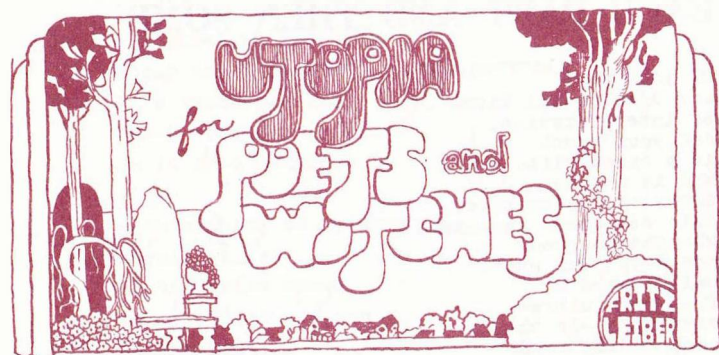 UTOPIA
for
POETS and
WITCHES
FRITZ
LEIBER